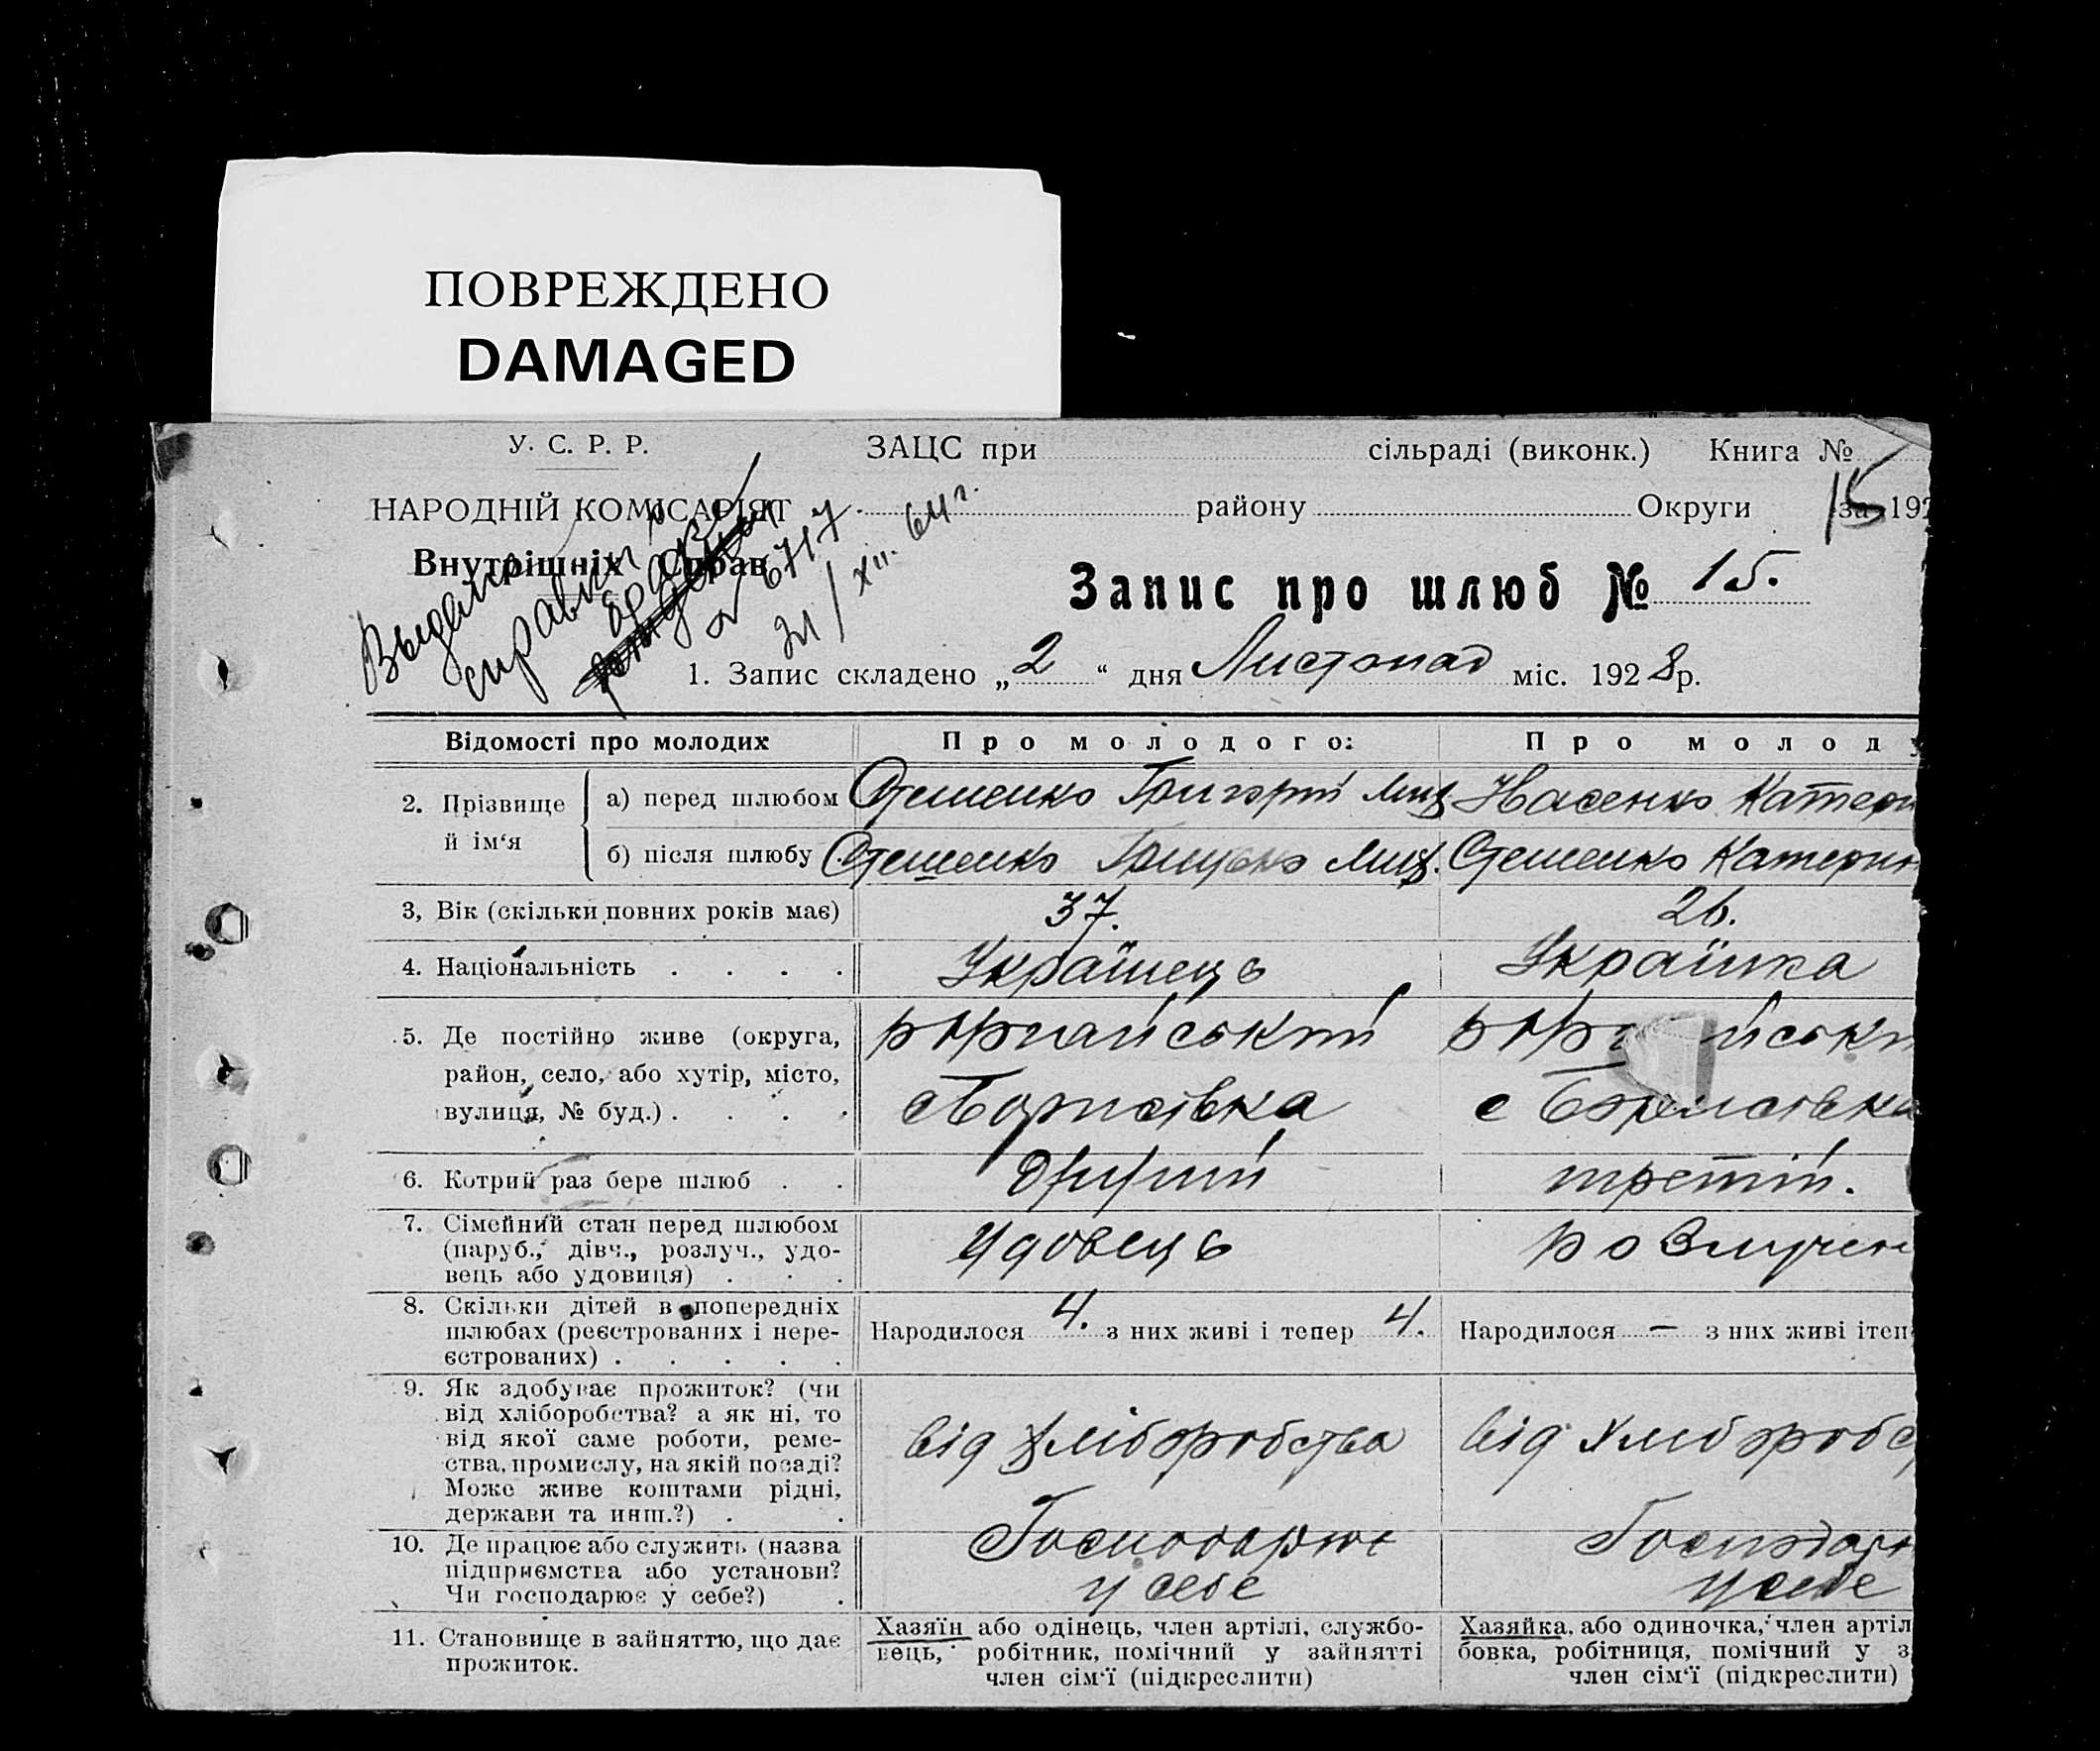 ПОВРЕЖДЕНО
DAMAGED
У. С. Р. Р.
ЗАЦС при сільраді (виконк.) Книга №
15
НАРОДНІЙ КОМІСАРІЯТ
району Округи за 192
Внутрішніх Справ
Выдана
справка
о браке
№ 6717
21/XII. 64 г.
Запис про шлюб № 15.
1. Запис складено „2“ дня Листопад міс. 1928 р.
Відомості про молодих
Про молодого:
Про молоду
2. Прізвище й ім‘я
а) перед шлюбом Стешенко Григорій Насенко Катери
б) після шлюбу Стешенко Стешенко Катерин
3, Вік (скільки повних років має) 37. 26.
4. Національність . . . . Українець Українка
5. Де постійно живе (округа,
район, село, або хутір, місто,
вулиця, № буд.) . . . .
с Борисівка
с Борисівка
6. Котрий раз бере шлюб . . Другий третій.
7. Сімейний стан перед шлюбом
(паруб., дівч., розлуч., удо-
вець або удовиця) . . .
Удовець розлучен
8. Скільки дітей в попередніх
шлюбах (реєстрованих і нере-
єстрованих) . . . . .
Народилося 4. з них живі і тепер 4.
Народилося — з них живі і теп
9. Як здобуває прожиток? (чи
від хліборобства? а як ні, то
від якої саме роботи, реме-
ства, промислу, на якій посаді?
Може живе коштами рідні,
держави та инш.?) . .
від хліборобства
від хліборобс
10. Де працює або служить (назва
підприємства або установи?
Чи господарює у себе?) .
Господарює
у себе
Господарю
у себе
11. Становище в зайняттю, що дає
прожиток.
Хазяїн або одінець, член артілі, службо-
вець, робітник, помічний у зайнятті
член сім‘ї (підкреслити)
Хазяйка, або одиночка, член артіл
бовка, робітниця, помічний у з
член сім‘ї (підкреслити)